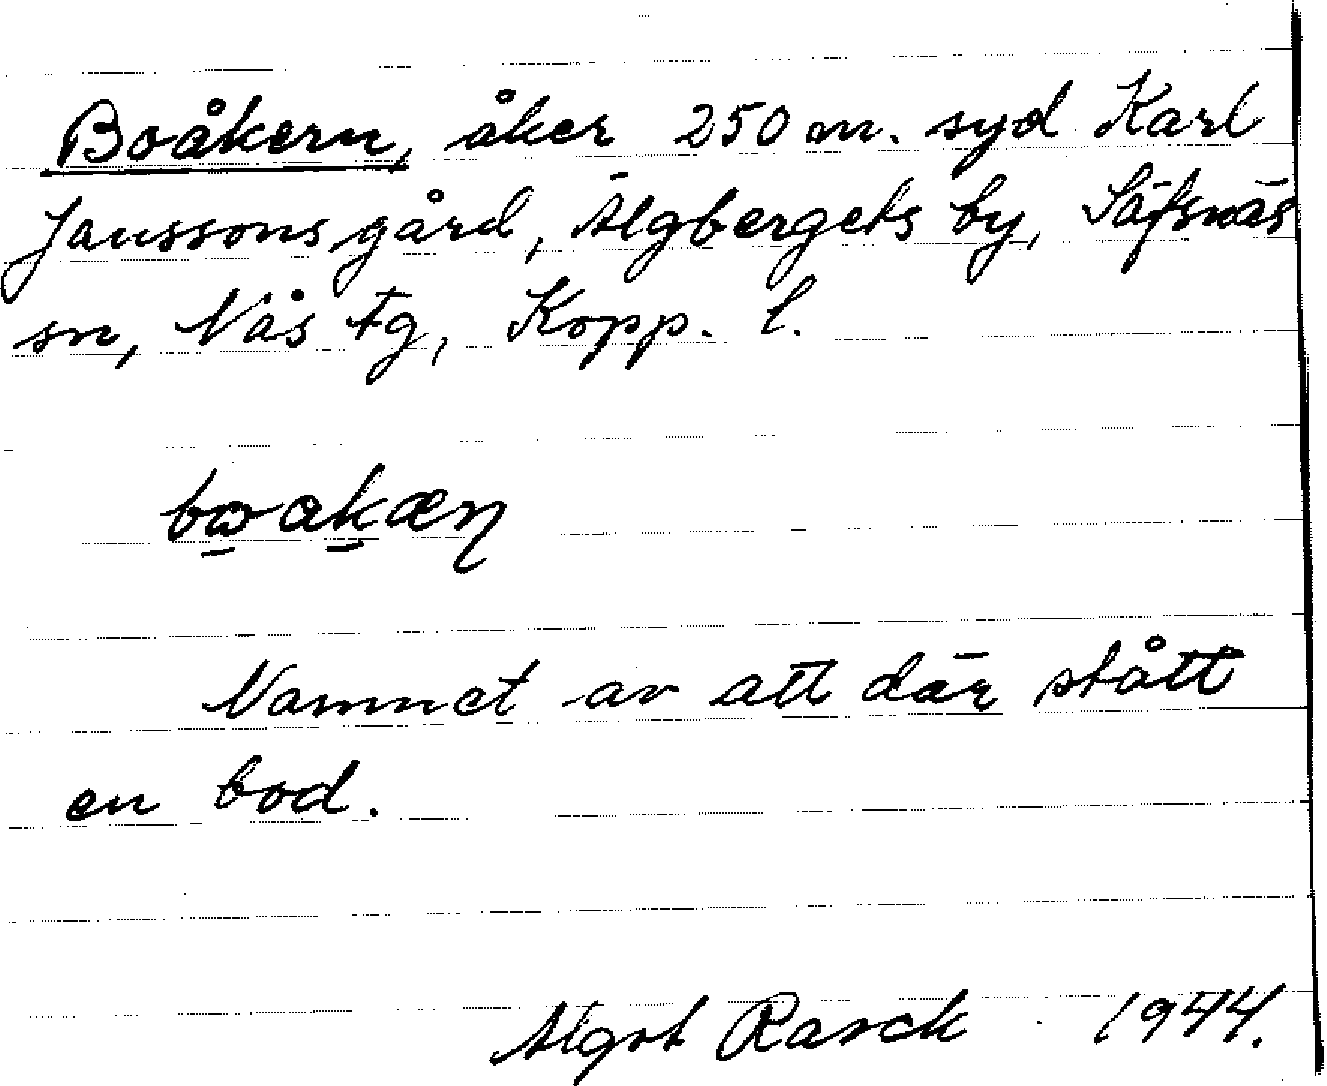 Boåkern, åker 250 m. syd Karl
Janssons gård, Älgbergets by, Säfsnäs
sn, Nås tg, Kopp. l.
Namnet av att där stått
en bod.
Algot Rasck 1944.